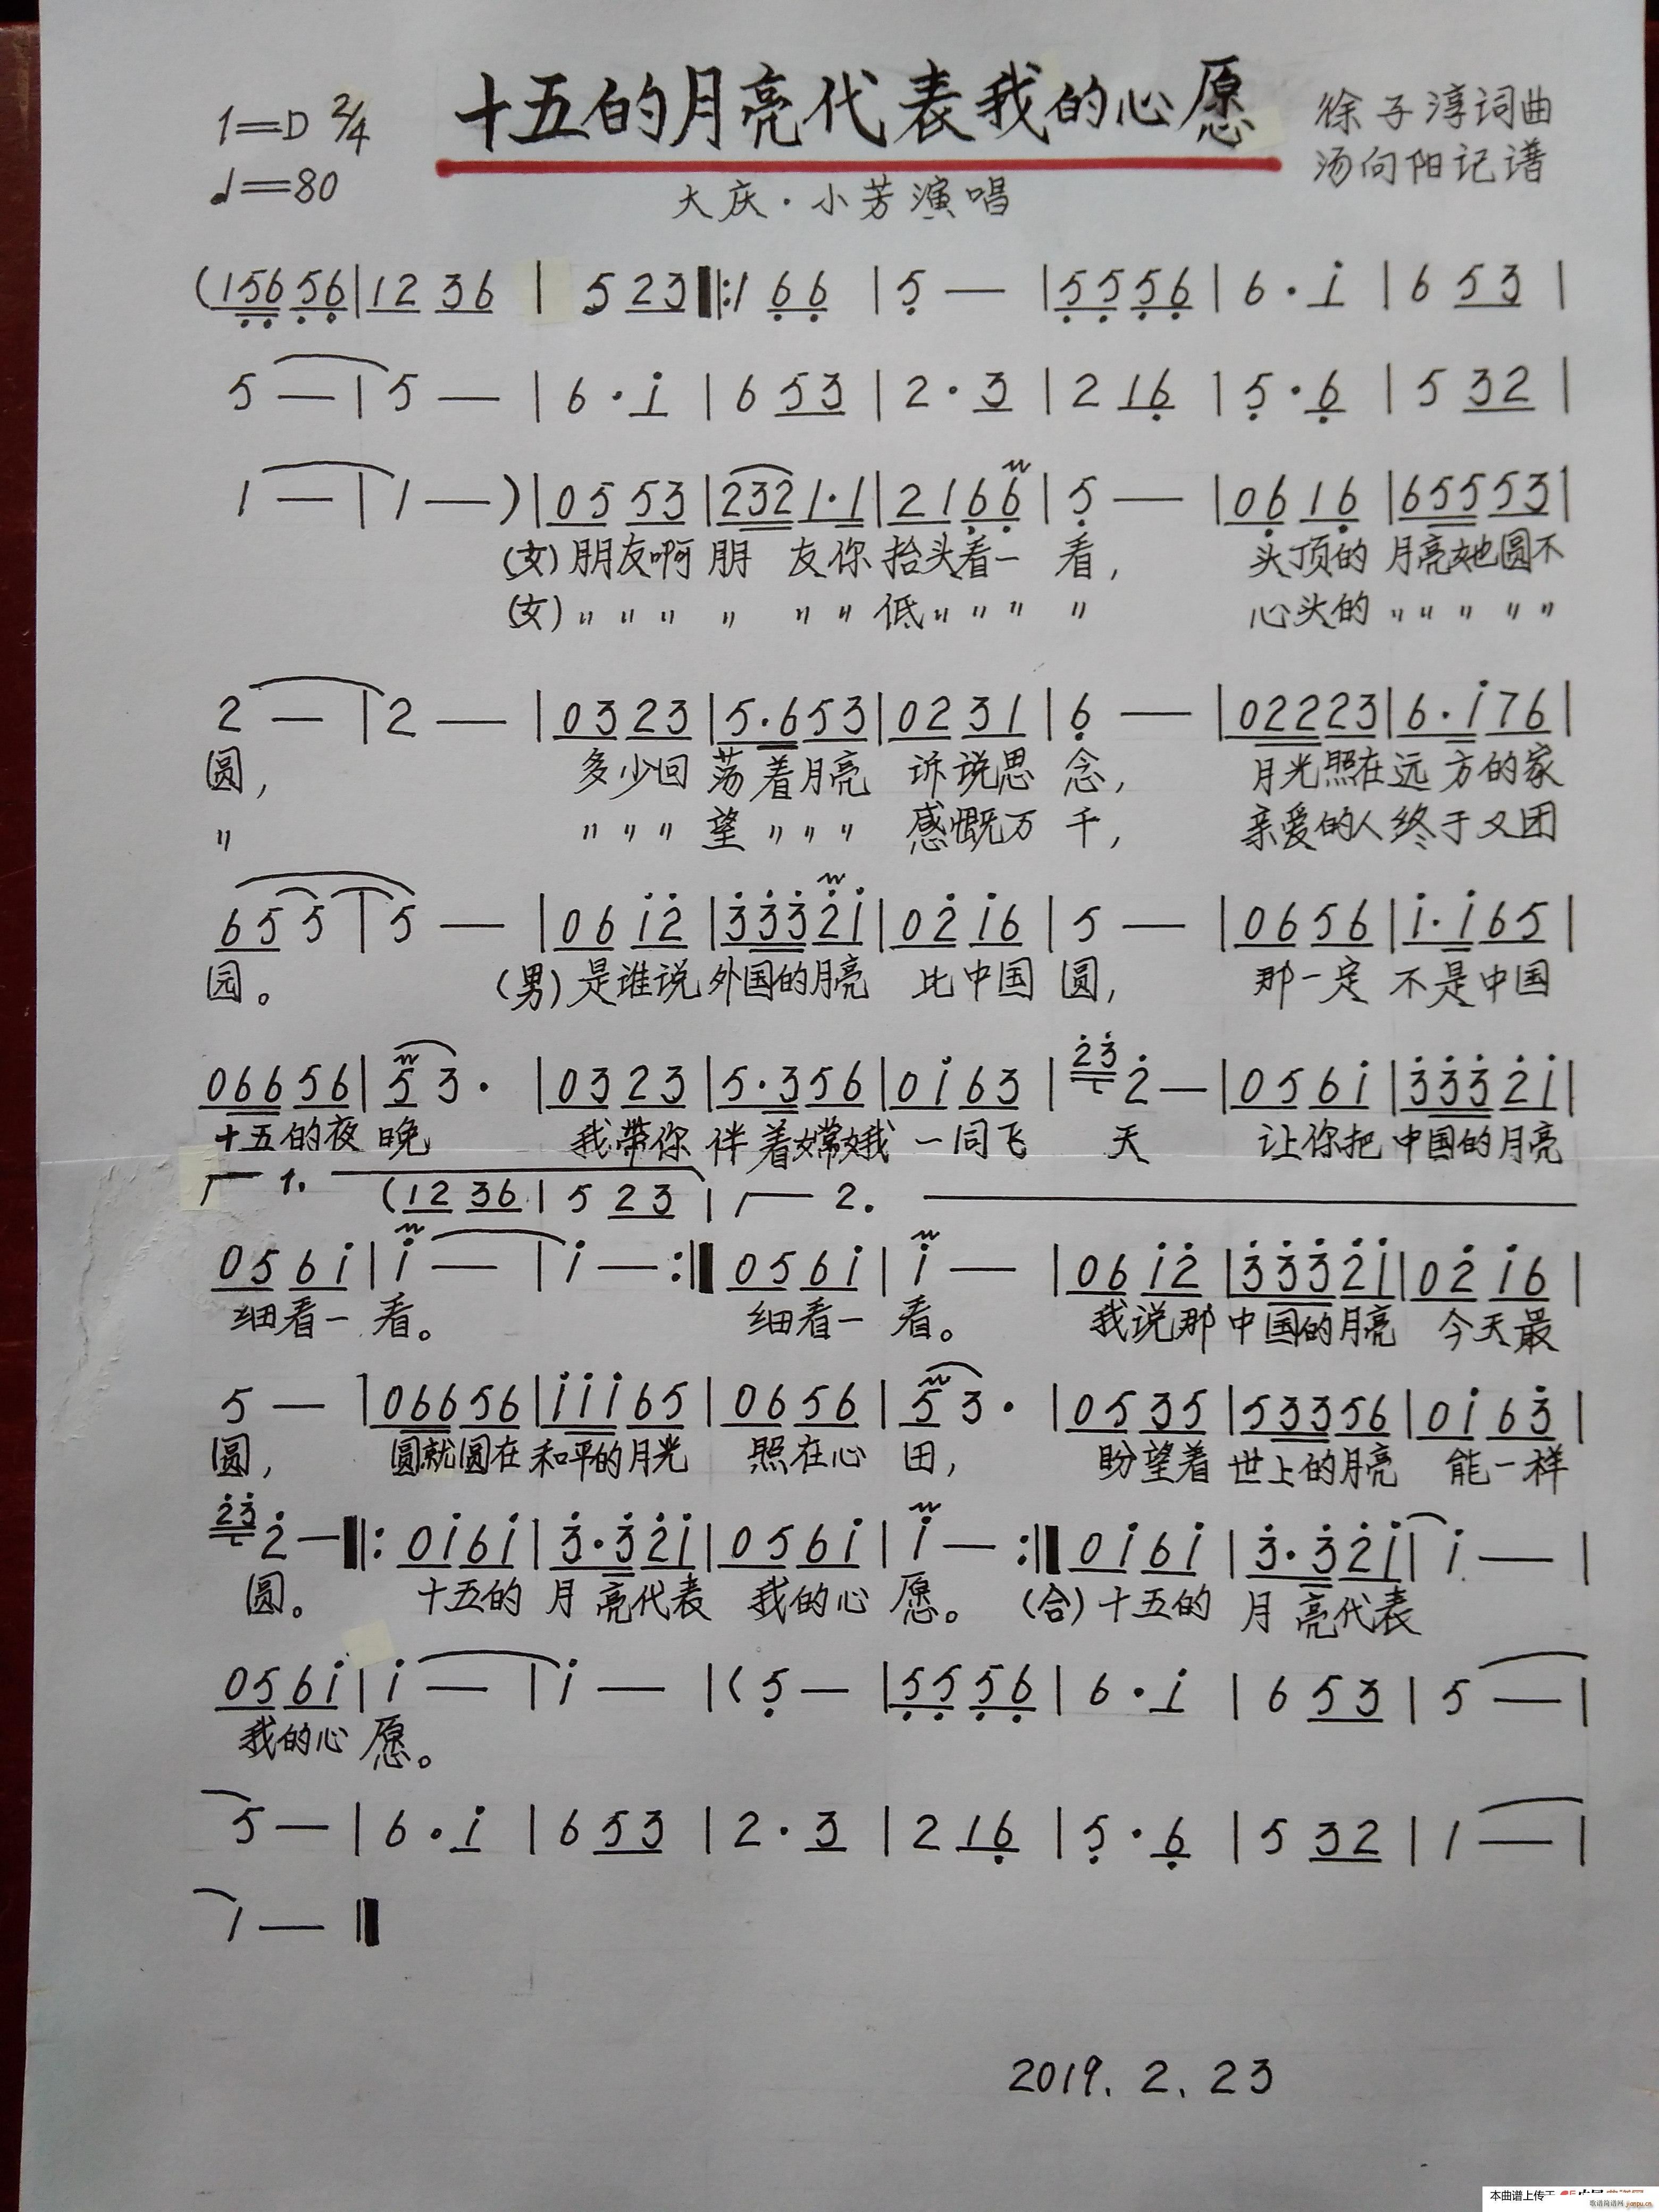 十五的月亮代表我的心愿
1=D 2/4
♩=80
徐子淳词曲
汤向阳记谱
大庆·小芳演唱
(156 56|12 36 | 5 23‖:1 66 |5 — |55 56|6·i|6 53|
5 —|5 — |6·i|6 53|2·3|2 16|5·6|5 32|
1 —|1 —)|05 53|232 1·1|21 66|5 — |06 16|655 53|
(女)朋友啊 朋 友你 抬头看一 看, 头顶的 月亮她圆不
(女)〃 〃 〃 〃 〃 〃 低〃 〃 〃 〃 心头的 〃 〃 〃 〃 〃
2 —|2 — |03 23|5·6 53|02 31|6 — |022 23|6·i 76|
圆, 多少回 荡着月亮 诉说思 念, 月光照在远 方的家
〃 〃 〃 〃 望 〃 〃 〃 感慨万 千, 亲爱的人终于又团
65 5|5 — |06 i2|333 2i|02 i6|5 — |06 56|i·i 65|
园。 (男)是谁说 外国的月亮 比中国 圆, 那一定 不是中国
066 56|5 3· |03 23|5·3 56|0i 63|23 2 —|05 6i|333 2i|
十五的夜 晚 我带你 伴着嫦娥 一同飞 天 让你把 中国的月亮
1. (12 36|5 23)| 2.
05 6i|i —|i —:‖05 6i|i — |06 i2|333 2i|02 i6|
细看一 看。 细看一 看。 我说那 中国的月亮 今天最
5 — |066 56|iii 65|06 56|5 3· |05 35|533 56|0i 63|
圆, 圆就圆在 和平的月光 照在心 田, 盼望着 世上的月亮 能一样
23 2 —‖:0i 6i|3·3 2i|05 6i|i — :‖0i 6i|3·3 2i|i — |
圆。 十五的 月 亮代表 我的心 愿。 (合)十五的 月 亮代表
05 6i|i —|i — |(5 —|55 56|6·i|6 53|5 —|
我的心 愿。
5 —|6·i|6 53|2·3|2 16|5·6|5 32|1 —|
1 —‖
2019.2.23
本曲谱上传于
歌谱简谱网 jianpu.cn